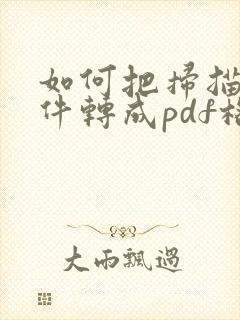 如何把掃描
件轉成pdf格
大雨飄過